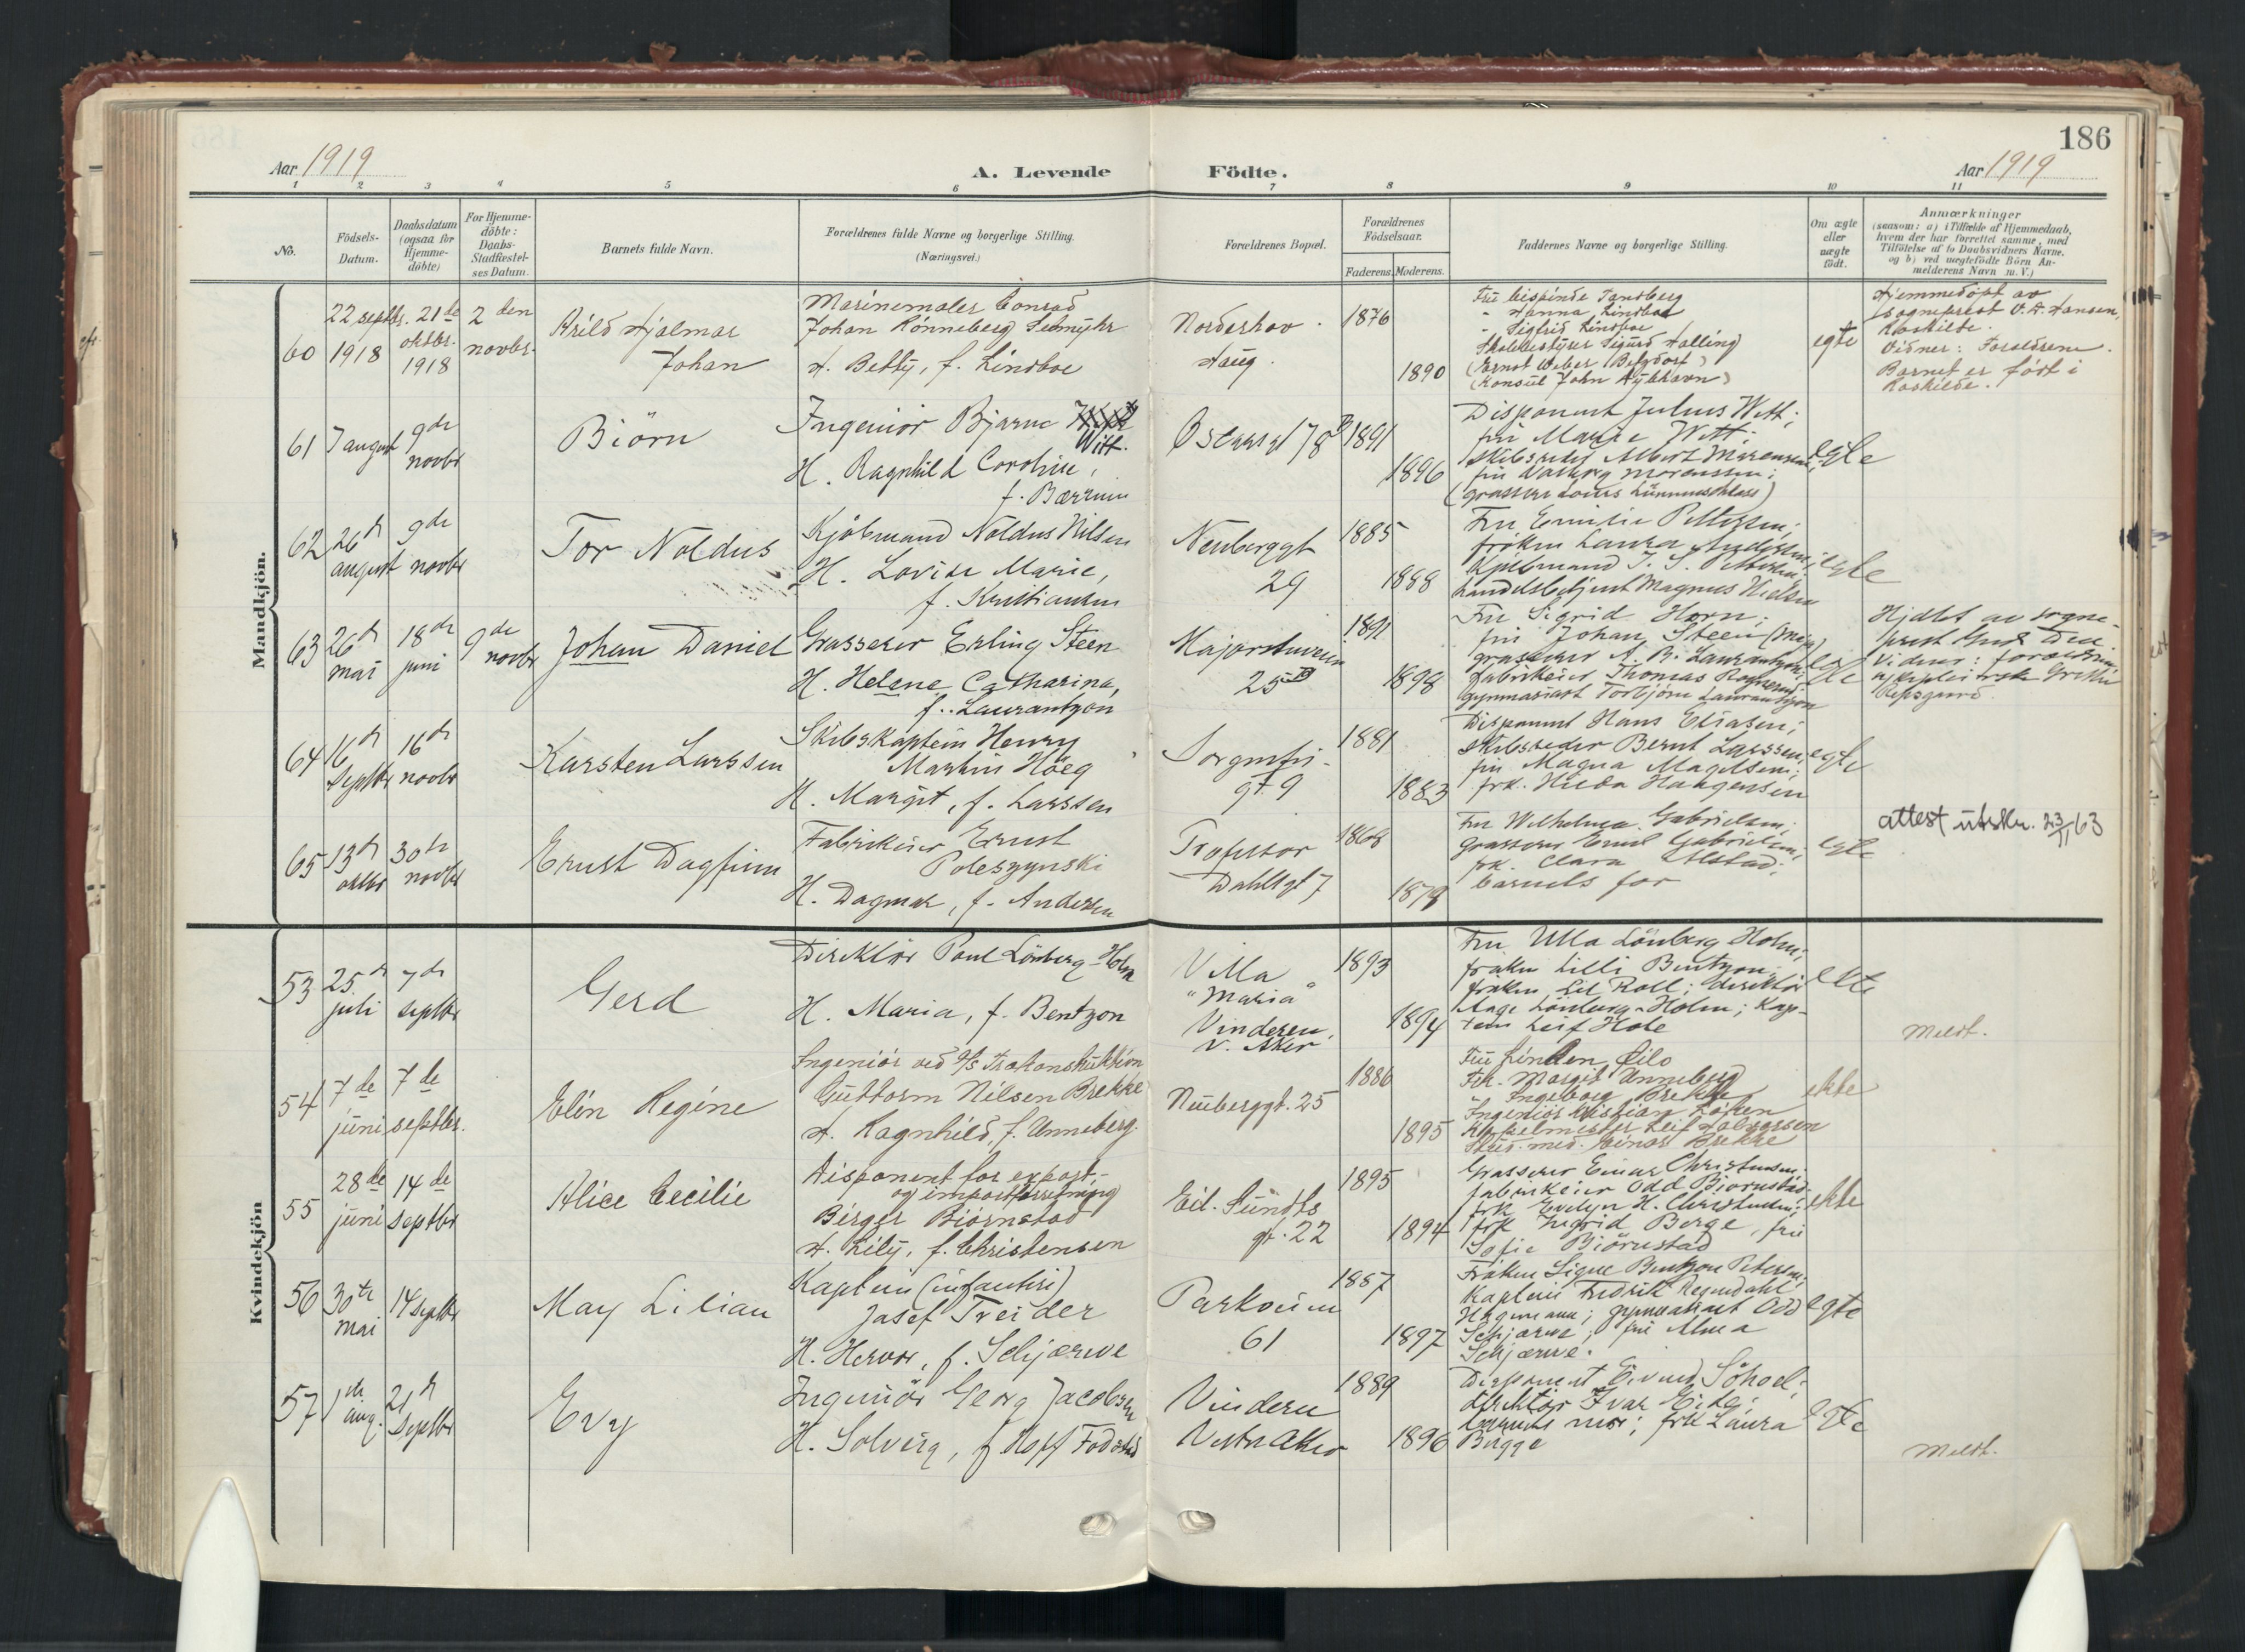 186
Aar 1919
A. Levende Födte.
Aar 1919
1 2 3 4 5 6 7 8 9 10 11
No.
Födsels-
Datum.
Daabsdatum
(ogsaa for
Hjemme-
döbte)
For Hjemme-
döbte:
Daabs-
Stadfæstel-
ses Datum.
Barnets fulde Navn.
Forældrenes fulde Navne og borgerlige Stilling.
(Næringsvei.)
Forældrenes Bopæl.
Forældrenes
Födselsaar.
Faderens. Moderens.
Faddernes Navne og borgerlige Stilling.
Om ægte
eller
uægte
födt.
Anmærkninger
(saasom: a) i Tilfælde af Hjemmedaab,
hvem der har forrettet samme, med
Tilföielse af to Daabsvidners Navne.
og b) ved uægtefödte Börn An-
melderens Navn m. V.)
Mandkjön.
60
22 septbr.
1918
21de
oktbr.
1918
2den
novbr.
Arild Hjalmar
Johan
Marinemaler Conrad
Johan Rönneberg Selmyhr
H. Betty, f. Lindboe
Norderhov.
Haug.
1876
1890
Fru bispinde Tandberg
" Hanna Lindboe
" Sigfrid Lindboe
Skolebestyrer Sigurd Halling
(Ernst Weber (Befgdorf)
(Konsul John Nyblhavn)
egte
Hjemmedöpt av
sogneprest V. A. Hansen,
Roskilde.
Vidner: Foreldrene.
Barnet er född i
Roskilde.
61
7 august
9de
novbr
Biörn
Ingeniör Bjarne
Witt.
H. Ragnhild Caroline,
f. Bærrum
Oscarsgt 78B
1891
1896
Disponent Julius Witt;
fru Marie Witt;
skibsreder Albert Morensen;
fru Valborg Morenssen;
(grosserer Louis Lünnenschloss)
egte
62
26de
august
9de
novbr
Tor Noldus
Kjöbmand Noldus Nilsen
H. Lovise Marie,
f. Kristiansen
Neuberggt
29
1885
1888
Fru Emilie Pettersen;
fröken Laura Andersen;
Kjöbmand J. S. Pettersen;
handelsbetjent Magnus Nielsen
egte
63
26de
mai
18de
juni
9de
novbr
Johan Daniel
Grosserer Erling Steen
H. Helene Catharina,
f. Laurantzon
Majorstuveien
25B
1891
1898
Fru Sigrid Horn;
fru Johan Steen
grosserer A. B. Laurantzon;
fabrikeier Thomas
gymnasiast Torbjörn Laurantzon
egte
Hjdbt av sogne-
prest
vidner: forældrene,
64
16de
Septbr
16de
novbr
Karsten Larssen
Skibskaptein Henry
Martin Höeg
H. Margit, f. Larssen
Sorgenfri-
gt. 9
1881
1883
Disponent Hans Eliasen;
skibsreder Bernt Larssen;
fru Magna Magelsen;
frk. Hilda Haagensen
egte
65
13de
oktbr
30te
novbr
Ernst Dagfinn
Fabrikeier Ernst
Poleszynski
H. Dagmar, f. Andersen
Professor
Dahlsgt 7
1868
1879
Fru Wilhelmea Gabrielsen;
grosserer Emil Gabrielsen;
frk. Clara Alstad;
barnets far
egte
attest utskr. 23/11 63
Kvindekjön
53
25de
juli
7de
septbr
Gerd
Direktör Paul Lönberg-Holm
H. Maria, f. Bentzon
Villa
"Maria"
Vinderen,
V. Aker
1893
1894
Fru Ulla Lönberg Holm;
fröken Lilli Bentzon;
fröken Lil Roll; direktör
Aage Lönberg-Holm; kap-
tein Leif Hole
ekte
Meldt.
54
7de
juni
7de
septbr.
Elin Regine
Ingeniör ved A/s Trakonstruktion
Guttorm Nilsen Brekke
H. Ragnhild, f. Unneberg.
Neuberggt. 25
1886
1895
Fru Linken Eilo
Frk. Margit Unneberg
" Ingeborg Brekke
Ingeniör Kristian Löken
Kapelmester Leif Halvorsen
Stud. med. Einar Brekke
ekte
55
28de
juni
14de
septbr
Alice Cecilie
Disponent for export-
og importforretning
Birger Biörnstad
H. Lily, f. Christensen
Eil. Sundts
gt. 22
1895
1894
Grosserer Einar Christensen;
fabrikeier Odd Bjornstad;
frk Evelyn H. Christensen;
frk Ingrid Berge, fru
Sofie Biörnstad
ekte
56
30te
mai
14 septbr
May Lilian
Kaptein (infanteri)
Josef Treider
H. Hervor, f. Schjærve
Parkveien
61
1887
1897
Fröken Signe Bentzon Petersen;
Kaptein Fredrik Rosendahl
Hagemann; gymnasiast Odd
Schjærve; fru Alma
Schjærve.
egte
57
1ste
aug.
21de
Septbr
Evy
Ingeniör Georg Jacobsen
H. Solveig, f Hoff Fodstad
Vinderen
Vestre Aker
1889
1896
Disponent Eivind Söhoel;
direktör Ivar Eide;
barnets mor; frk Laura
Bugge
egte
Meldt.